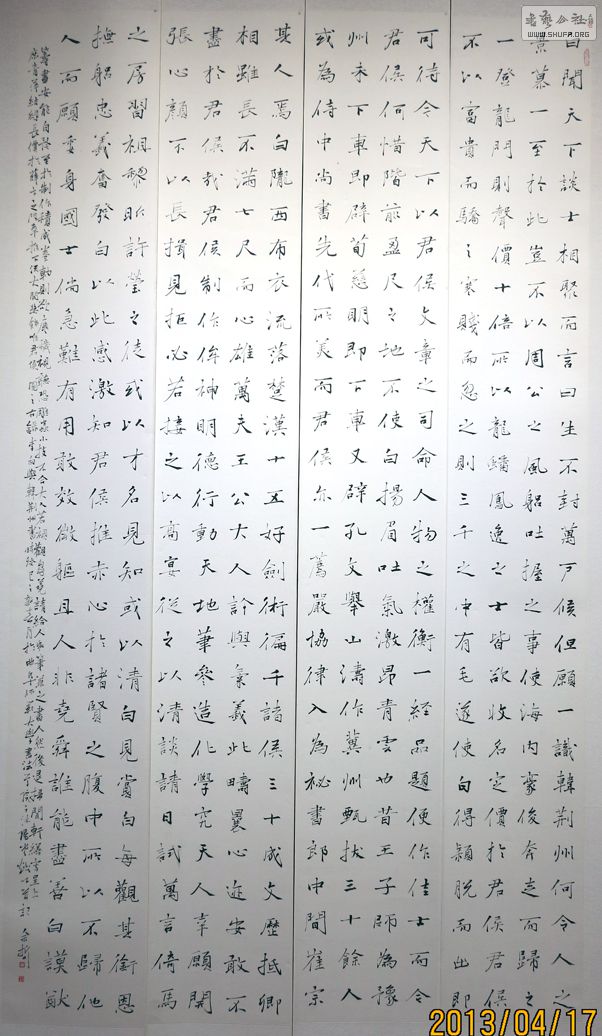 白聞天下談士相聚而言曰生不封萬户侯但願一識韓荊州何令人之
景慕一至於此豈不以周公之風躬吐握之事使海内豪俊奔走而歸之
一登龍門則聲價十倍所以龍蟠鳳逸之士皆欲收名定價於君侯君侯
不以富貴而驕之寒賤而忽之則三千之中有毛遂使白得穎脱而出即
可待今天下以君侯文章之司命人物之權衡一經品題便作佳士而今
君侯何惜階前盈尺之地不使白揚眉吐氣激昂青雲地昔王子師為豫
州未下車即辟荀慈明即下車又辟孔文舉山濤作冀州甄拔三十餘人
或為侍中尚書先代所美而君侯亦一薦嚴協律入為祕書郎中間崔宗
其人焉白隴西布衣流落楚漢十五好劍術徧干諸侯三十成文歷抵卿
相雖長不滿七尺而心雄萬夫王公大人許與氣義此疇曩心迹安敢不
盡於君侯哉君侯制作侔神明德行動天地筆參造化學究天人幸願開
張心顏不以長揖見拒必若接之以高宴從之以清談請日試萬言倚馬
之房習祖黎昕許瑩之徒或以才名見知或以清白見賞白每觀其銜恩
撫躬忠義奮發白以此感激知君侯推赤心於諸賢之腹中所以不歸他
人而願委身國士倘急難有用敢效微軀且人非堯舜誰能盡善白謨猷
籌畫安能自矜至於制作積成卷軸則欲塵穢視聽恐雕蟲小技不合大人若賜觀芻蕘請給筆兼之書人然後退掃閒軒繕寫呈上
庶青萍結緑長價於薛卞之門幸推下流大開獎飾唯君侯圖之古録李白與韓荊州書
書藝公社
WWW.SHUFA.ORG
2013/04/17